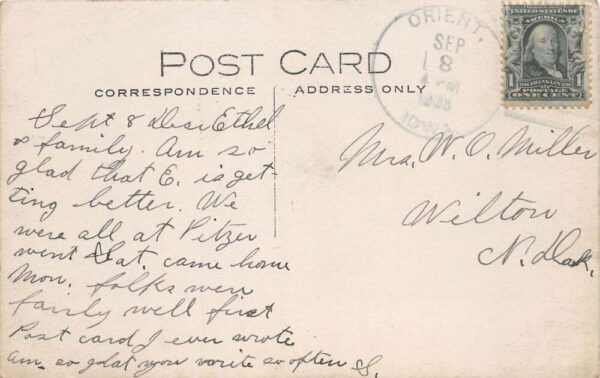 POST CARD
CORRESPONDENCE
ADDRESS ONLY
ORIENT.
SEP
8
4 PM
1908
IOWA
UNITED STATES OF
AMERICA
1
1
FRANKLIN
POSTAGE
ONE CENT
Sept 8 Dear Ethel
& family. Am so
glad that E. is get-
ting better. We
were all at Pitzer
went Sat. came home
Mon. folks were
fairly well first
Post card I ever wrote
am so glat you vorite so often S.
Mrs. W. O. Miller
Wilton
N. Dak.